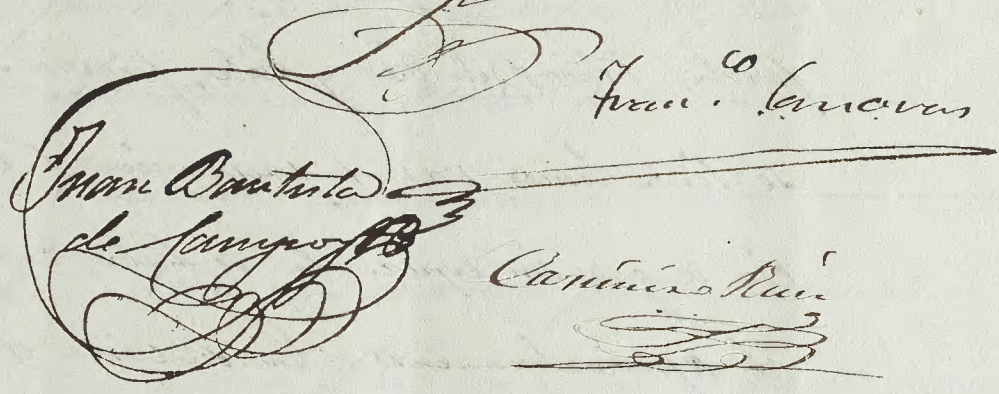 Fran.co Canovas
Juan Bautista
de Campos
Casimiro Ruiz